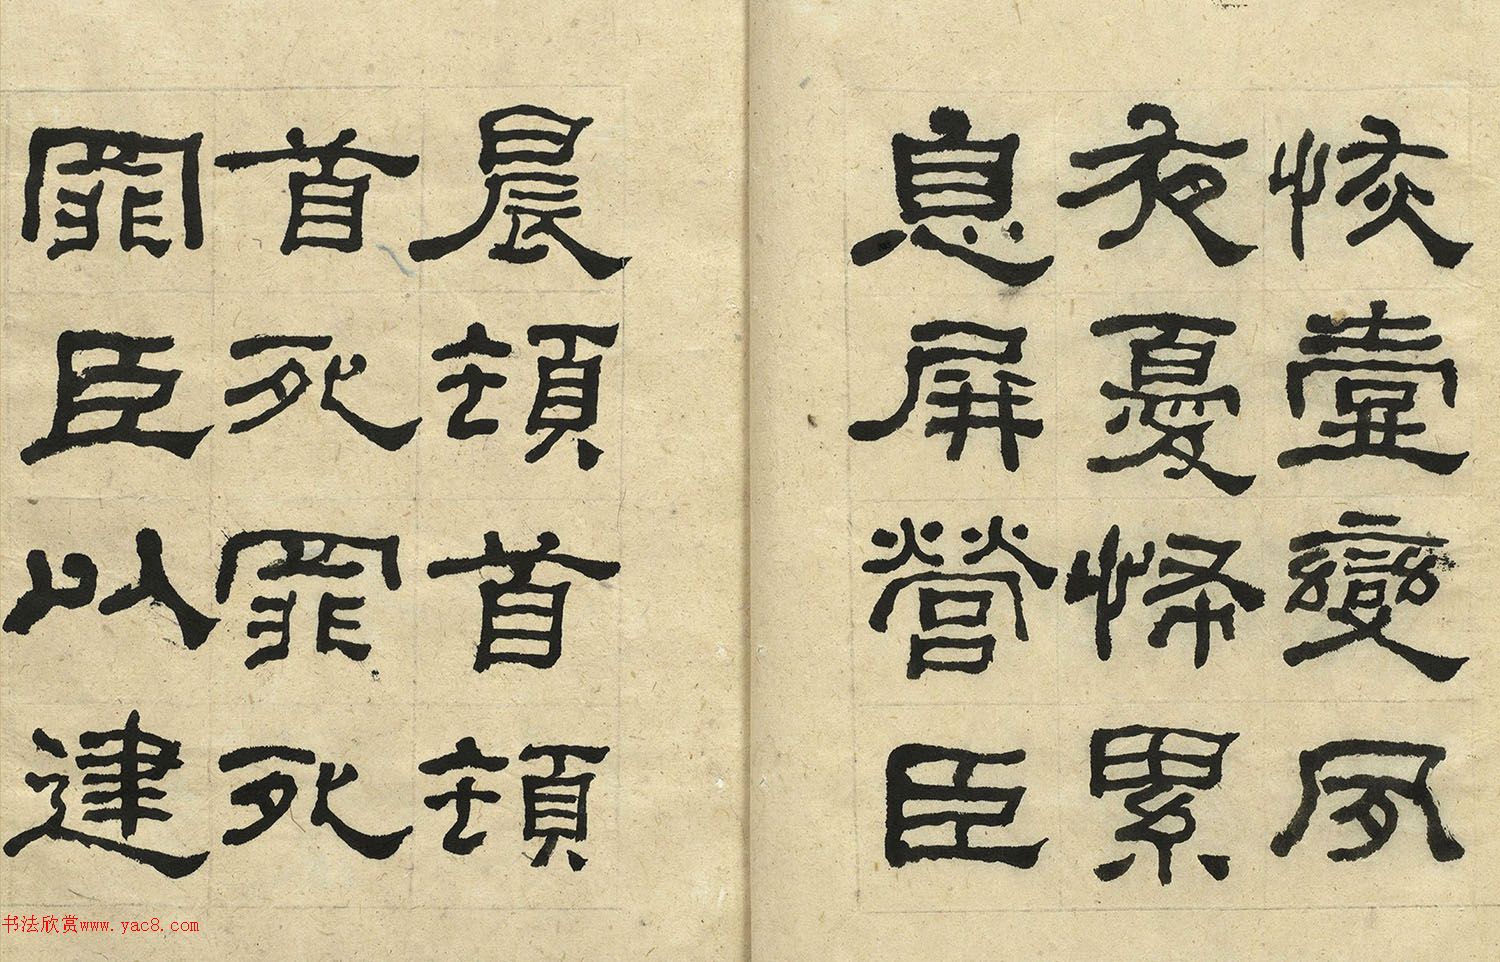 恢壹變夙
夜憂怖累
息屏營臣
晨頓首頓
首死罪死
罪臣以建
书法欣赏www.yac8.com